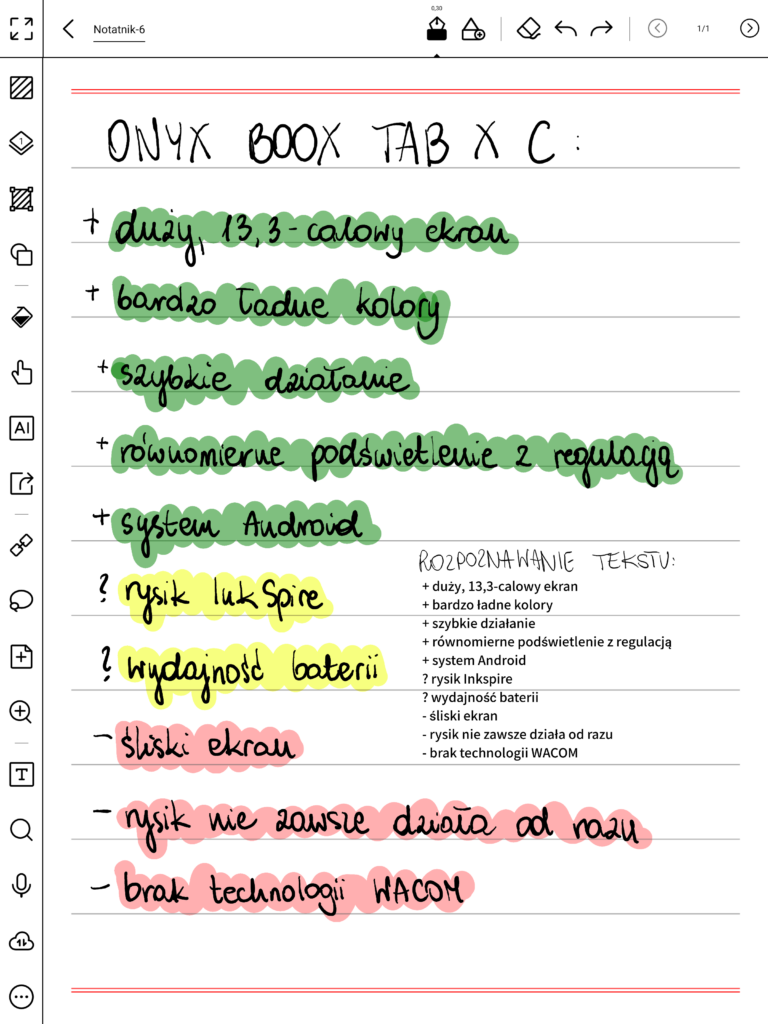 0,30
Notatnik-6
1/1
ONYX BOOX TAB X C:
+ duży, 13,3-calowy ekran
+ bardzo ładne kolory
+ szybkie działanie
+ równomierne podświetlenie z regulacją
+ system Android
? rysik InkSpire
? wydajność baterii
- śliski ekran
- rysik nie zawsze działa od razu
- brak technologii WACOM
ROZPOZNAWANIE TEKSTU:
+ duży, 13,3-calowy ekran
+ bardzo ładne kolory
+ szybkie działanie
+ równomierne podświetlenie z regulacją
+ system Android
? rysik Inkspire
? wydajność baterii
- śliski ekran
- rysik nie zawsze działa od razu
- brak technologii WACOM
1
AI
T